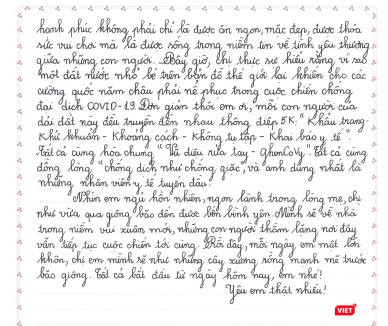 hạnh phúc không phải chỉ là được ăn ngon, mặc đẹp, được thỏa
sức vui chơi mà là được sống trong niềm tin về tình yêu thương
giữa những con người. Bây giờ, chị thực sự hiểu rằng vì sao
một đất nước nhỏ bé trên bản đồ thế giới lại khiến cho các
cường quốc năm châu phải nể phục trong cuộc chiến chống
đại dịch COVID-19. Đơn giản thôi em ơi, mỗi con người của
dải đất này đều truyền đến nhau thông điệp 5K: "Khẩu trang-
Khử khuẩn - Khoảng cách - Không tụ tập - Khai báo y tế".
Tất cả cùng hòa chung "Vũ điệu rửa tay - GhenCoVy". Tất cả cùng
đồng lòng "chống dịch như chống giặc", và anh dũng nhất là
những nhân viên y tế tuyến đầu!
Nhìn em ngủ hồn nhiên, ngon lành trong lòng mẹ, chị
như vừa qua giông bão đến được bến bình yên. Mình sẽ về nhà
trong niềm vui xuân mới, những con người thầm lặng nơi đây
vẫn tiếp tục cuộc chiến tới cùng. Rồi đây, mỗi ngày em một lớn
khôn, chị em mình sẽ như những cây xương rồng mạnh mẽ trước
bão giông. Tất cả bắt đầu từ ngày hôm nay, em nhé!
Yêu em thật nhiều!
VIET